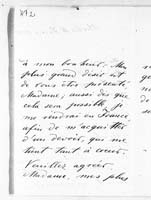 à mon bonheur. Mon
plus grand désir est
de vous être présenté
Madame, aussi dès que
cela sera possible je
me rendrai en France,
afin de m'acquitter
d'un devoir, qui me
tient tant à coeur.
Veuillez agréer
Madame, mes plus